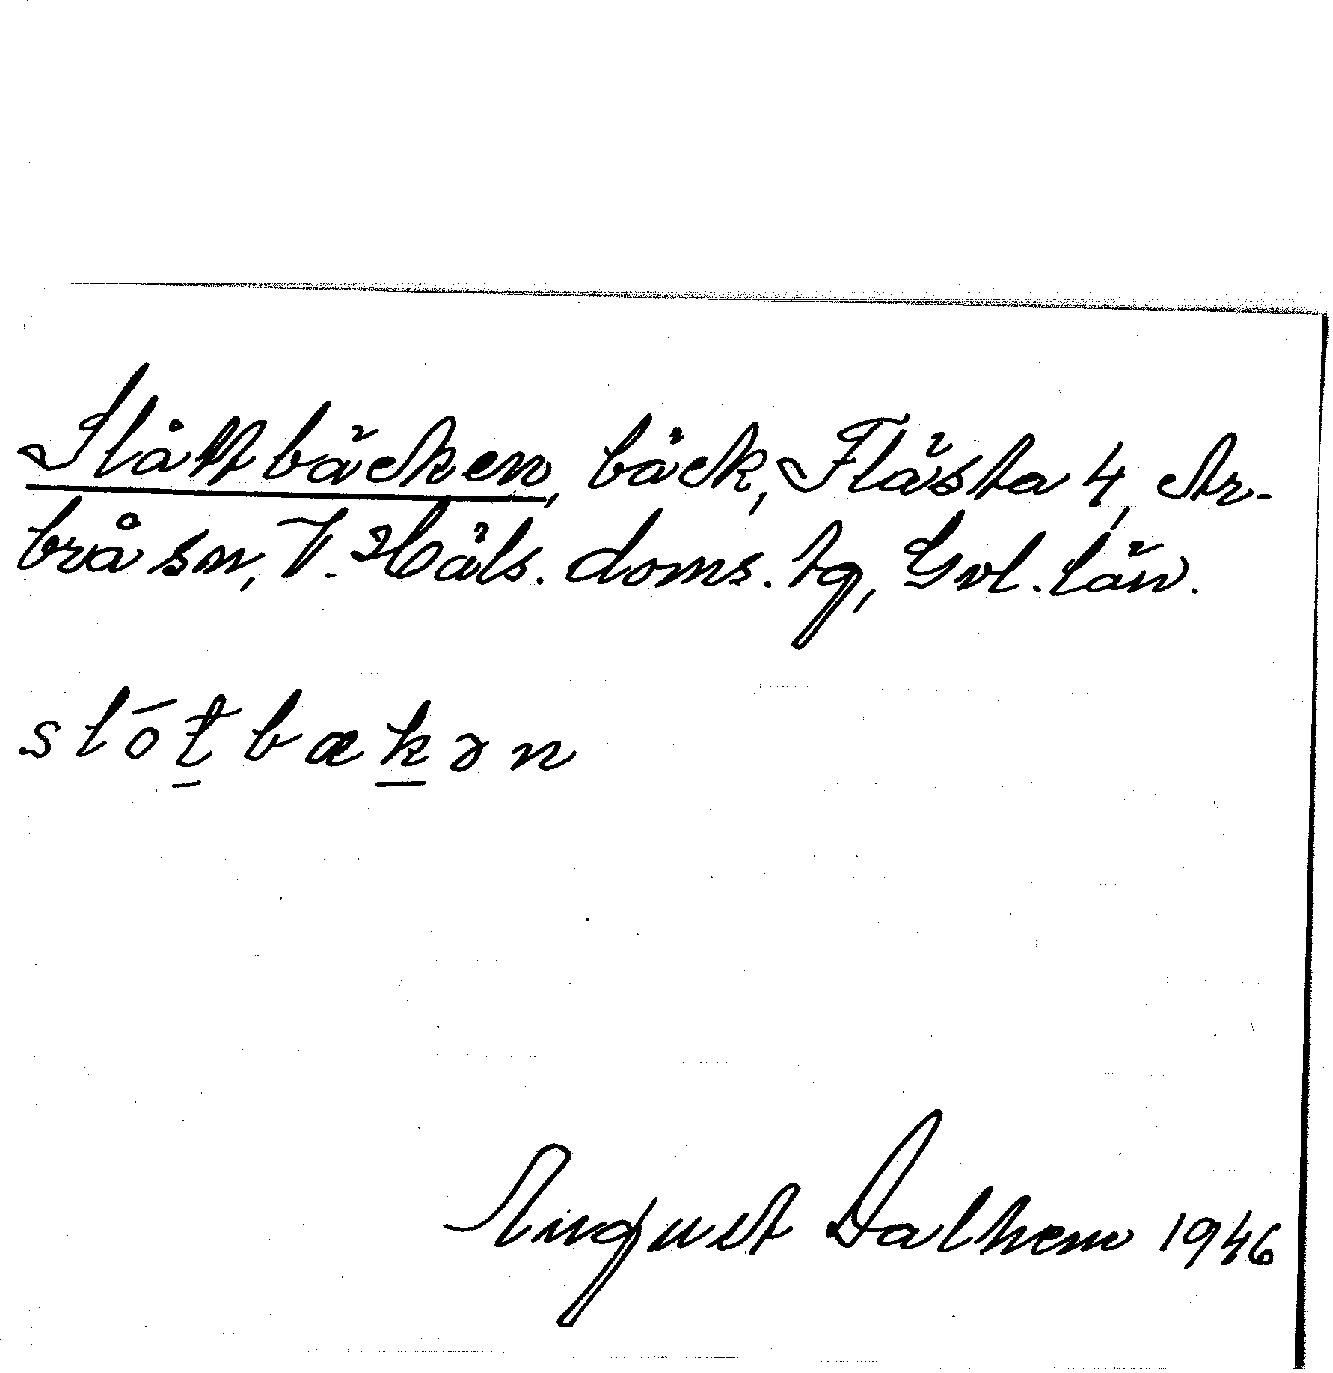 Slåttbäcken, bäck, Flästa 4, Ar-
brå sn, V. Häls. doms. tg, Gvl. län.
slótbækən
August Dalhem 1946